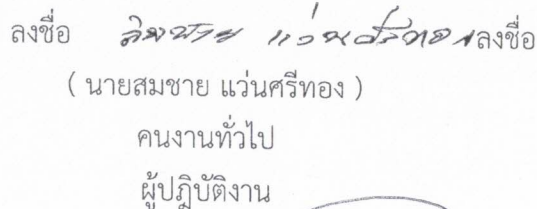 ลงชื่อ สมชาย แว่นศรีทอง ลงชื่อ
( นายสมชาย แว่นศรีทอง )
คนงานทั่วไป
ผู้ปฏิบัติงาน